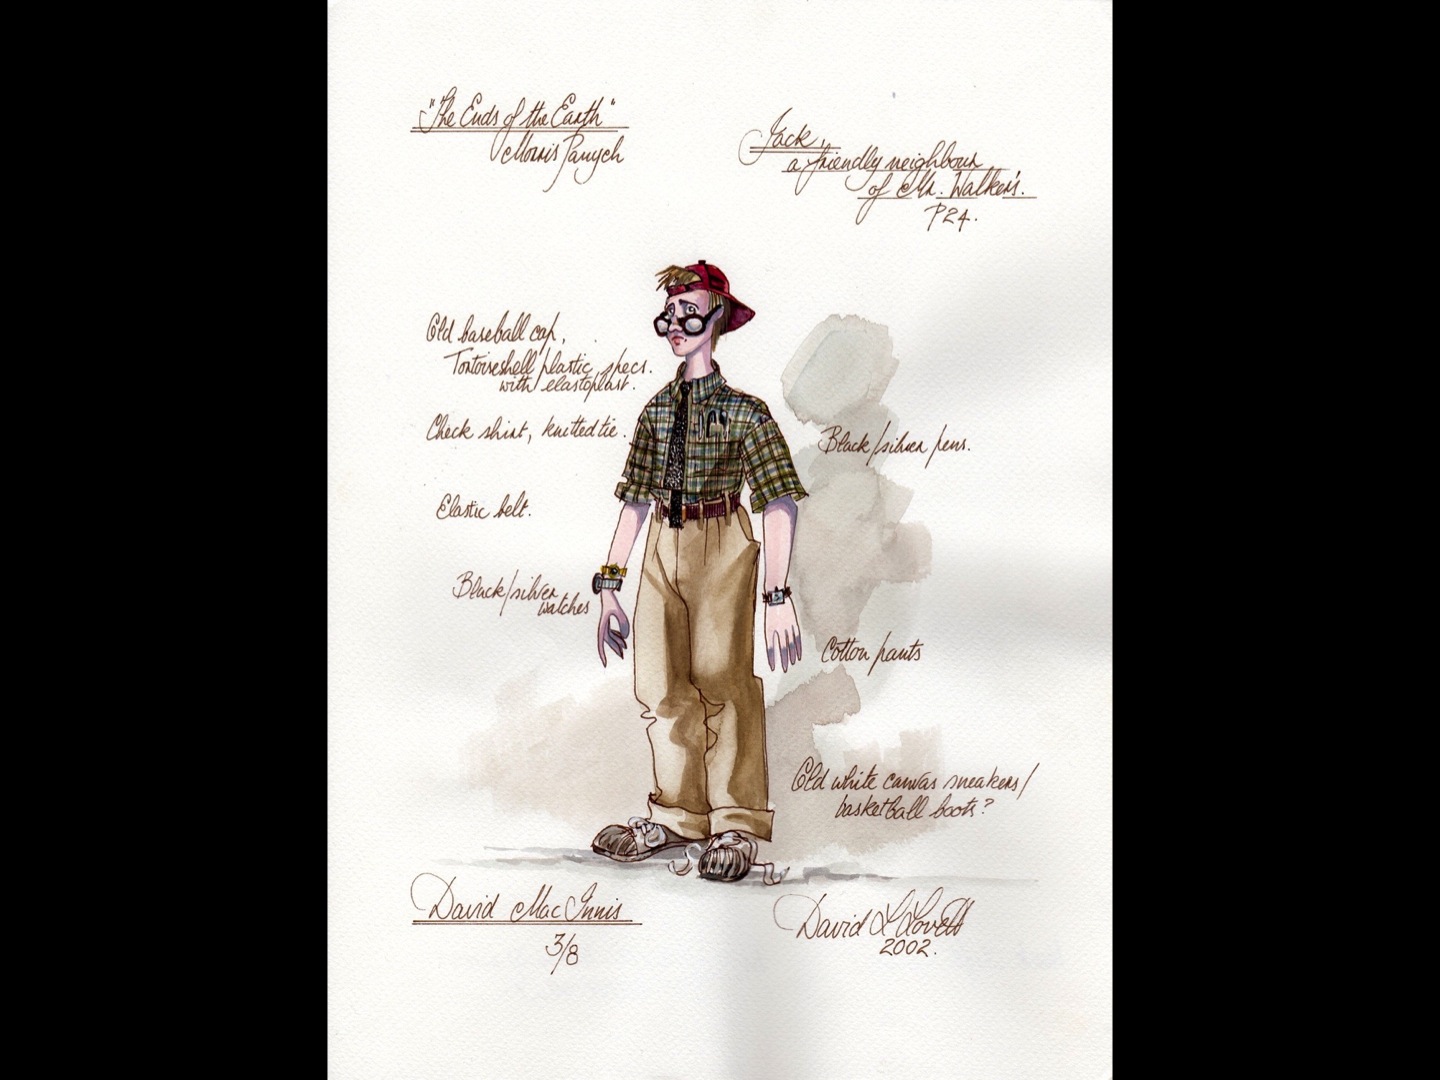 "The Ends of the Earth"
Morris Panych
Jack,
a friendly neighbour
of Mr. Walker's.
P24.
Old baseball cap,
Tortoiseshell plastic specs.
with elastoplast.
Check shirt, knitted tie.
Black/silver pens.
Elastic belt.
Black/silver
watches
Cotton pants
Old white canvas sneakers/
basketball boots?
David MacInnis
3/8
David L Lovett
2002.